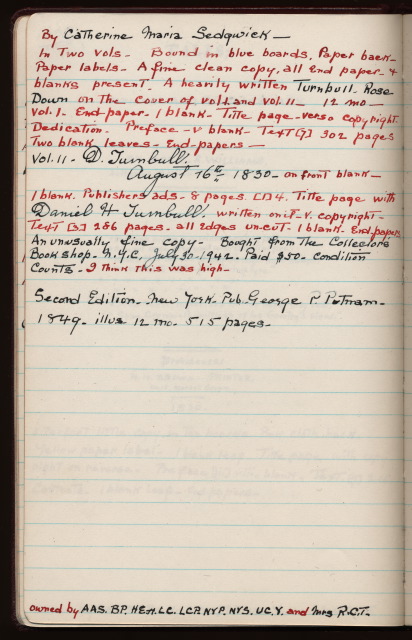 By Catherine Maria Sedgwick —
In Two Vols - Bound in blue boards, Paper back -
Paper labels - A fine clean copy, all End paper - &
blanks present. A hearily written Turnbull. Rose
Down on the cover of vol I and Vol. II - 12 mo -
Vol. I - End-paper - 1 blank - Title page - verso copyright.
Dedication - Preface - v blank - Text [7] 302 pages
Two blank leaves - End-papers -
Vol. II - D. Turnbull!
August 16th 1830 - on front blank -
1 blank. Publishers ads - 8 pages. [1] 4. Title page with
Daniel H Turnbull! written on it - v. copyright -
Text [3] 286 pages - all edges uncut - 1 blank. End papers
An unusually fine copy - Bought from The Collectors
Book shop - N.Y.C. July 30 - 1942 - Paid $50 - condition
Counts - I think this was high -
Second Edition - New York - Pub. George P. Putnam -
1849 - illus 12 mo. 515 pages -
owned by AAS. BP. HEH. LC. LCP. NYP. NYS. UC. Y. and Mrs R.C.T.